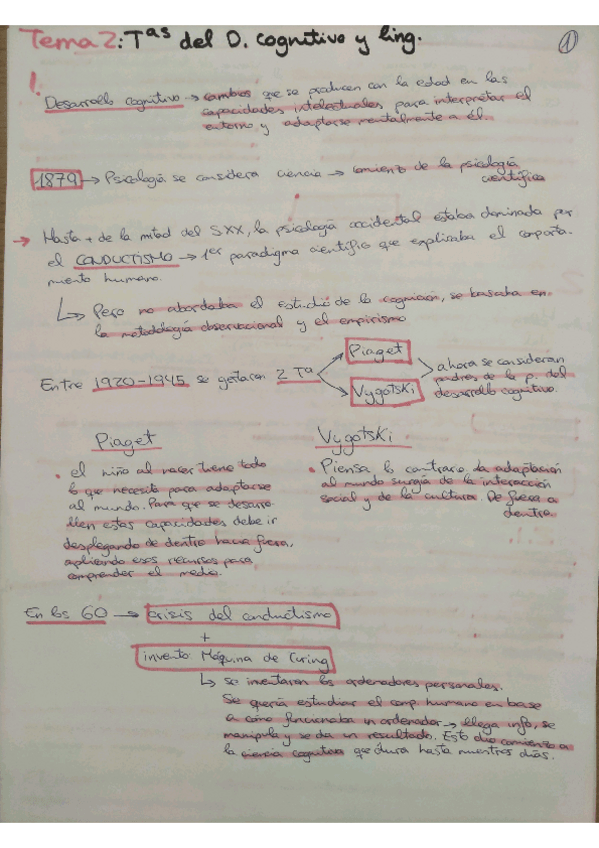 Tema 2: Tªs del D. cognitivo y ling.
1
! Desarrollo cognitivo → cambios que se producen con la edad en las
capacidades intelectuales para interpretar el
entorno y adaptarse mentalmente a él.
1879 → Psicología se considera ciencia → comienzo de la psicología
científica
→ Hasta + de la mitad del SXX, la psicología occidental estaba dominada por
el CONDUCTISMO → 1er paradigma científico que explicaba el comporta-
miento humano.
↳ Pero no abordaba el estudio de la cognición, se basaba en
la metodología observacional y el empirismo
Entre 1920-1945 se gestaron 2 Tª
Piaget
Vygotski
ahora se consideran
padres de la p. del
desarrollo cognitivo.
Piaget
• el niño al nacer tiene todo
lo que necesita para adaptarse
al mundo. Para que se desarro-
llen estas capacidades debe ir
desplegando de dentro hacia fuera,
aplicando esos recursos para
comprender el medio.
Vygotski
• Piensa lo contrario, la adaptación
al mundo surgía de la interacción
social y de la cultura. De fuera a
dentro.
En los 60 → crisis del conductismo
+
invento Máquina de Curing
↳ se inventaron los ordenadores personales.
Se quería estudiar el comp. humano en base
a cómo funcionaba un ordenador → llega info, se
manipula y se da un resultado. Esto dio comienzo a
la ciencia cognitiva que dura hasta nuestros días.